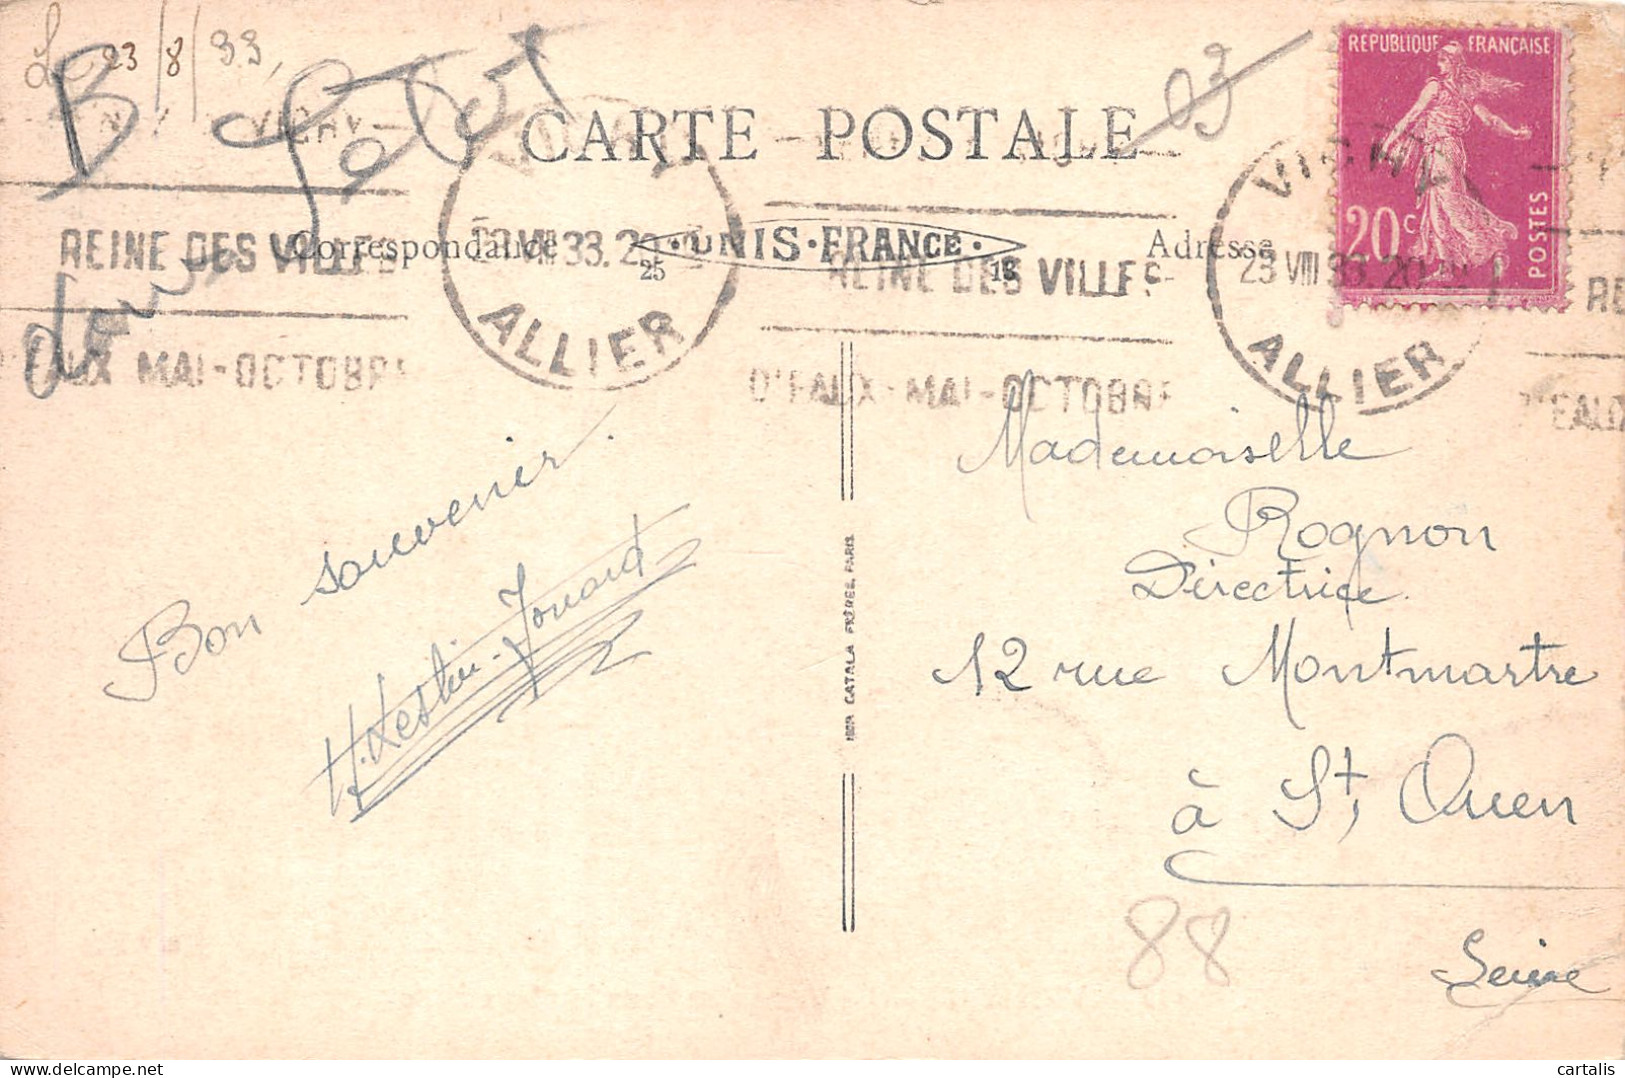 Le 23/8/33,
03
CARTE POSTALE
REPUBLIQUE FRANÇAISE
20c
POSTES
VICHY
23 VIII 33. 20
ALLIER
REINE DES VILLES
D'EAUX MAI-OCTOBRE
VICHY
ALLIER
REINE DES VILLES
D'EAUX-MAI-OCTOBRE
Correspondance
·UNIS·FRANCE·
25
18
Adresse
Bon souvenir.
Mademoiselle
Rognon
Directrice
12 rue Montmartre
à St, Ouen
Seine
88
IMP. CATALA FRÈRES, PARIS
cartalis
www.delcampe.net